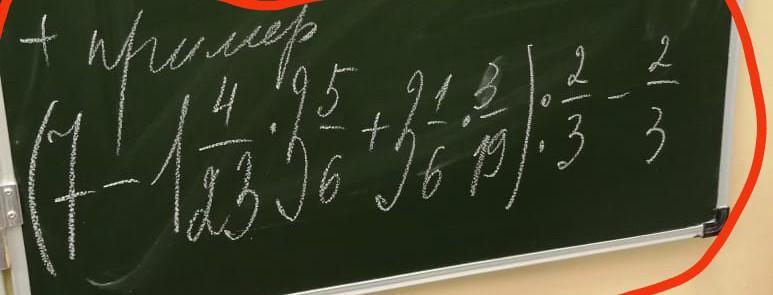 + пример
(7 - 1 4/23 · 3 5/6 + 3 1/6 · 3/19) : 2/3 - 2/3